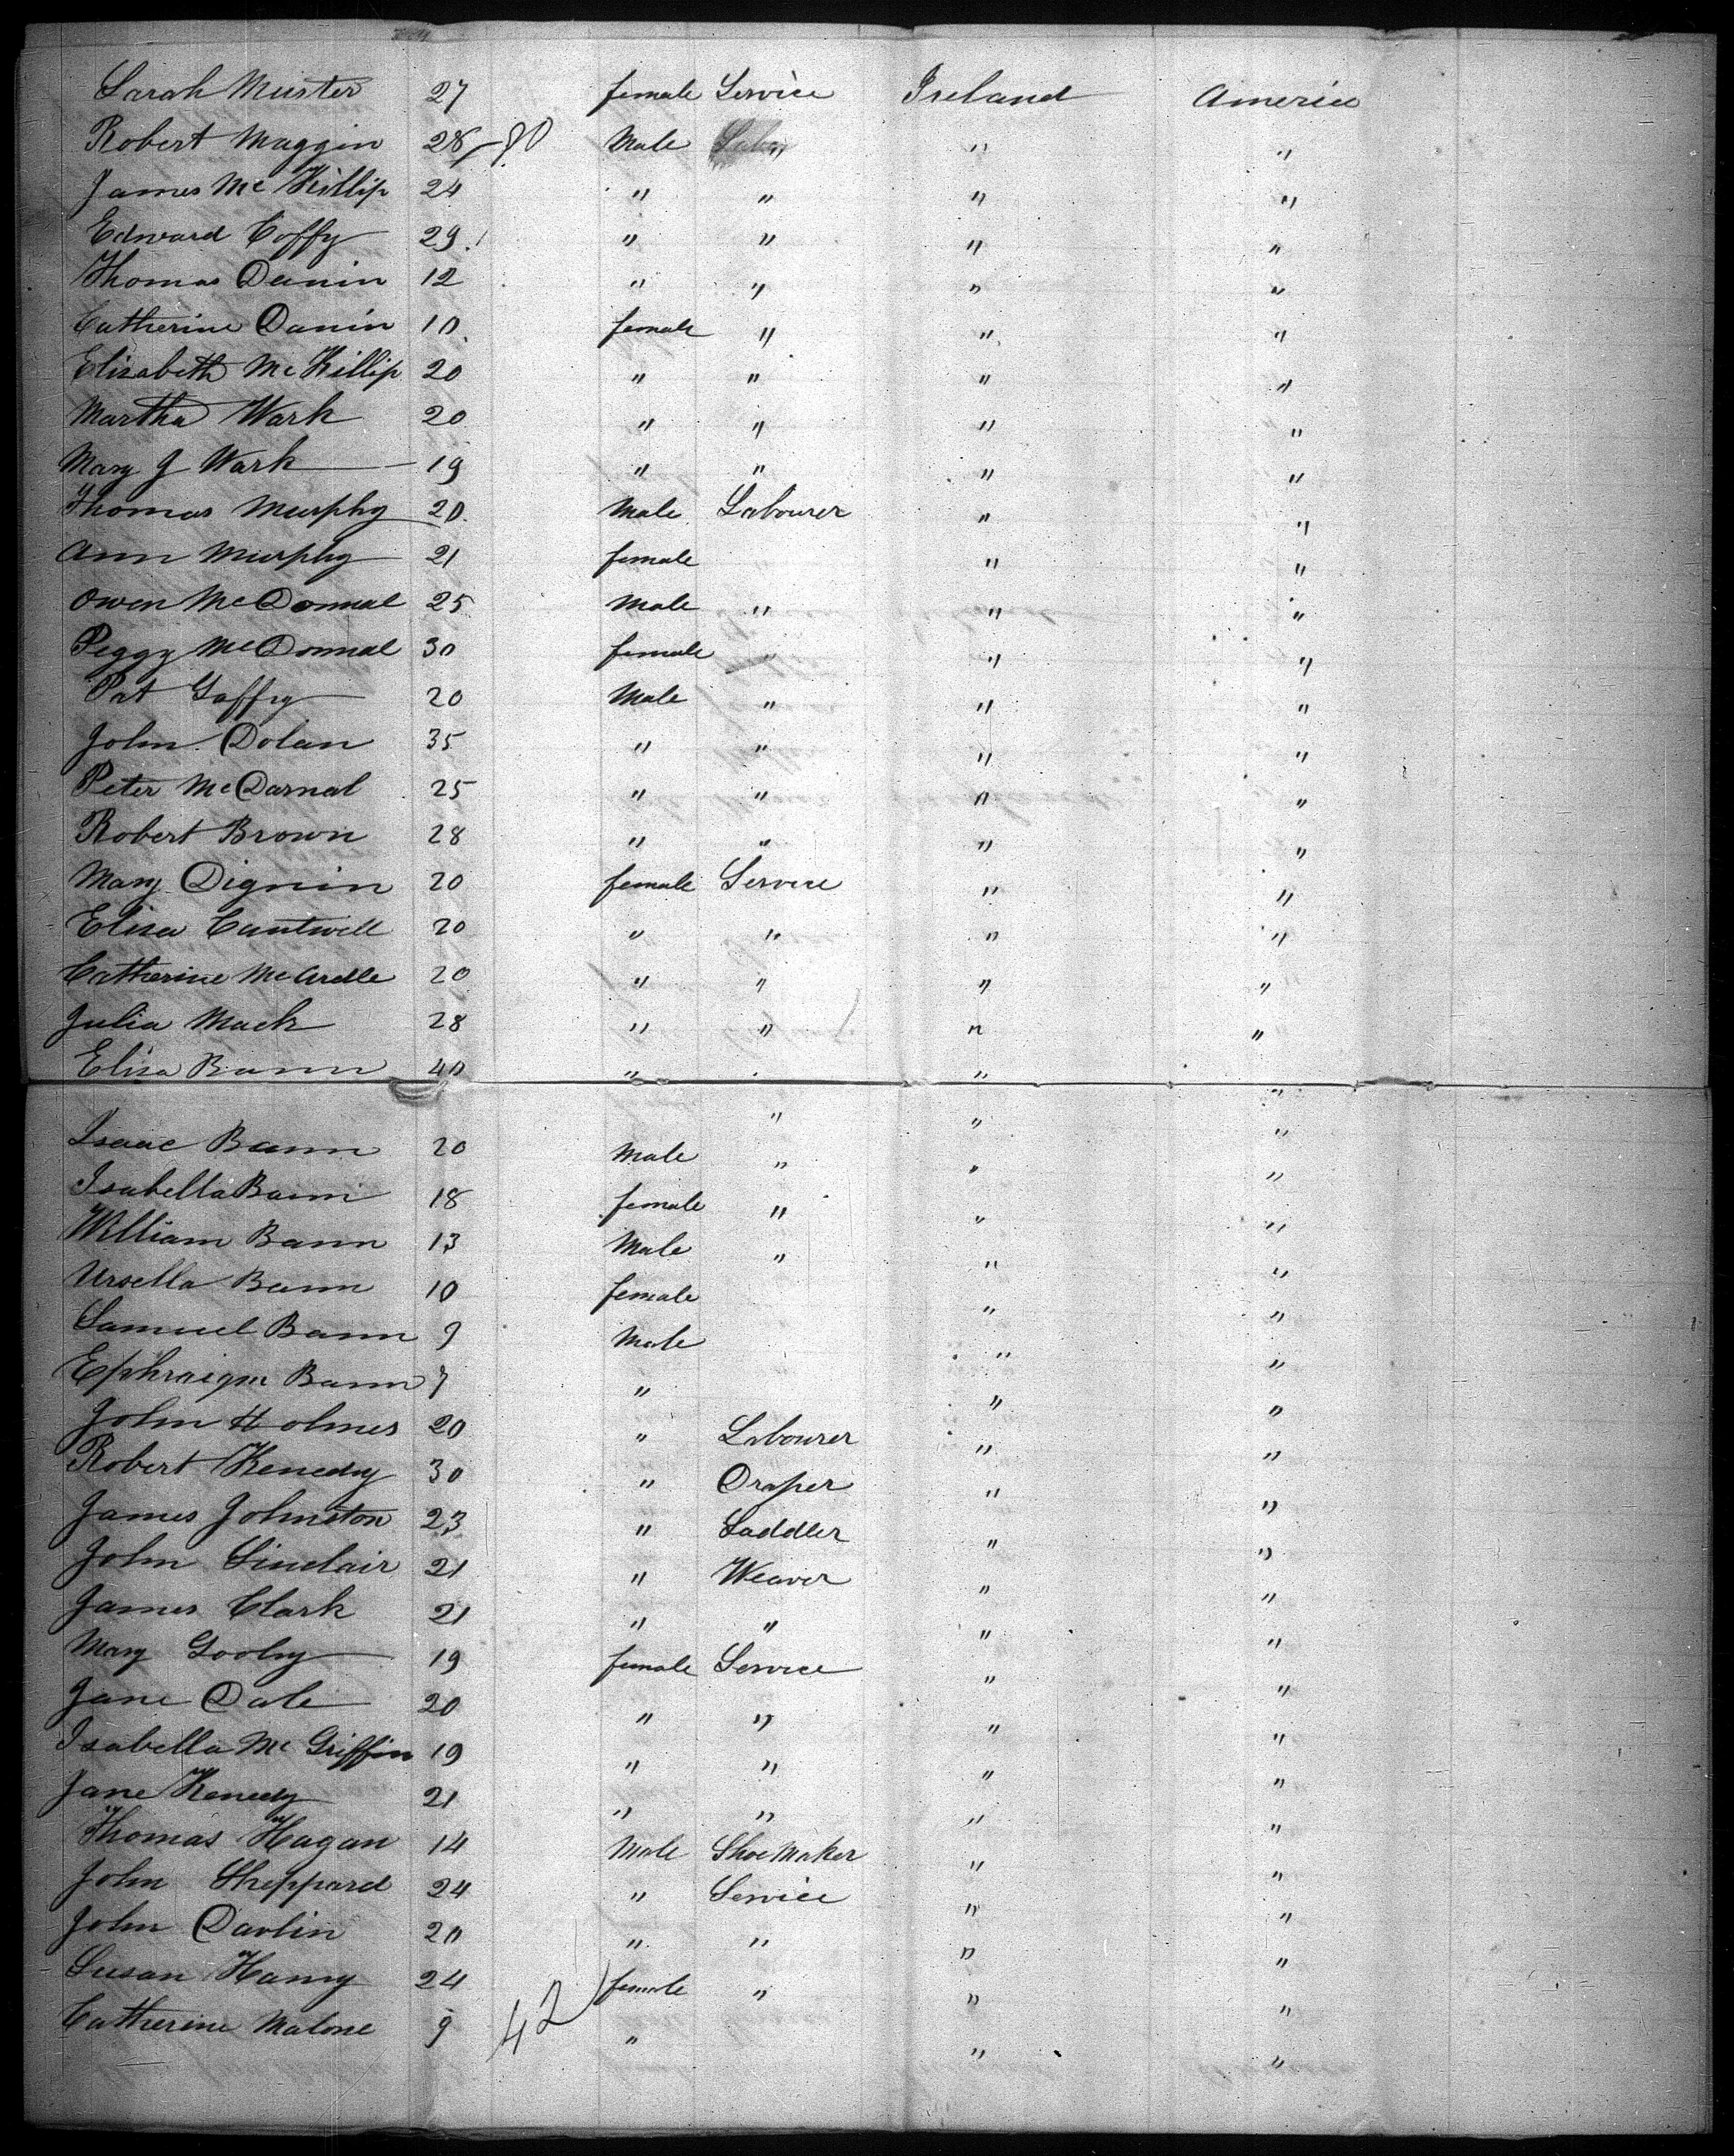 Sarah Muster 27 female Service Ireland America
Robert Maggin 28 Male " " "
James McKillip 24 " " " "
Edward Coffy 29 " " " "
Thomas Danin 12 " " " "
Catherine Danin 10 female " " "
Elisabeth McKillip 20 " " " "
Martha Wark 20 " " " "
Mary J Wark 19 " " " "
Thomas Murphy 20 Male Labourer " "
Ann Murphy 21 female " "
Owen McDonnal 25 Male " " "
Peggy McDonnal 30 female " " "
Pat Gaffy 20 Male " " "
John Dolan 35 " " " "
Peter McDarnal 25 " " " "
Robert Brown 28 " " " "
Mary Dignin 20 female Service " "
Elisa Cantwell 20 " " " "
Catherine McArdle 20 " " " "
Julia Mack 28 " " " "
Elisa Bann 40 " " " "
Isaac Bann 20 Male " " "
Isabella Bann 18 female " " "
William Bann 13 Male " " "
Ursella Bann 10 female " "
Samuel Bann 9 Male " "
Ephraigm Bann 7 " " "
John Holmes 20 " Labourer " "
Robert Kenedy 30 " Draper " "
James Johnston 23 " Saddler " "
John Sinclair 21 " Weaver " "
James Clark 21 " " " "
Mary Gooly 19 female Service " "
Jane Dale 20 " " " "
Isabella McGriffin 19 " " " "
Jane Kenedy 21 " " " "
Thomas Hagan 14 Male ShoeMaker " "
John Sheppard 24 " Service " "
John Davlin 20 " " " "
Susan Hamy 24 female " " "
Catherine Malone 9 42 " " "